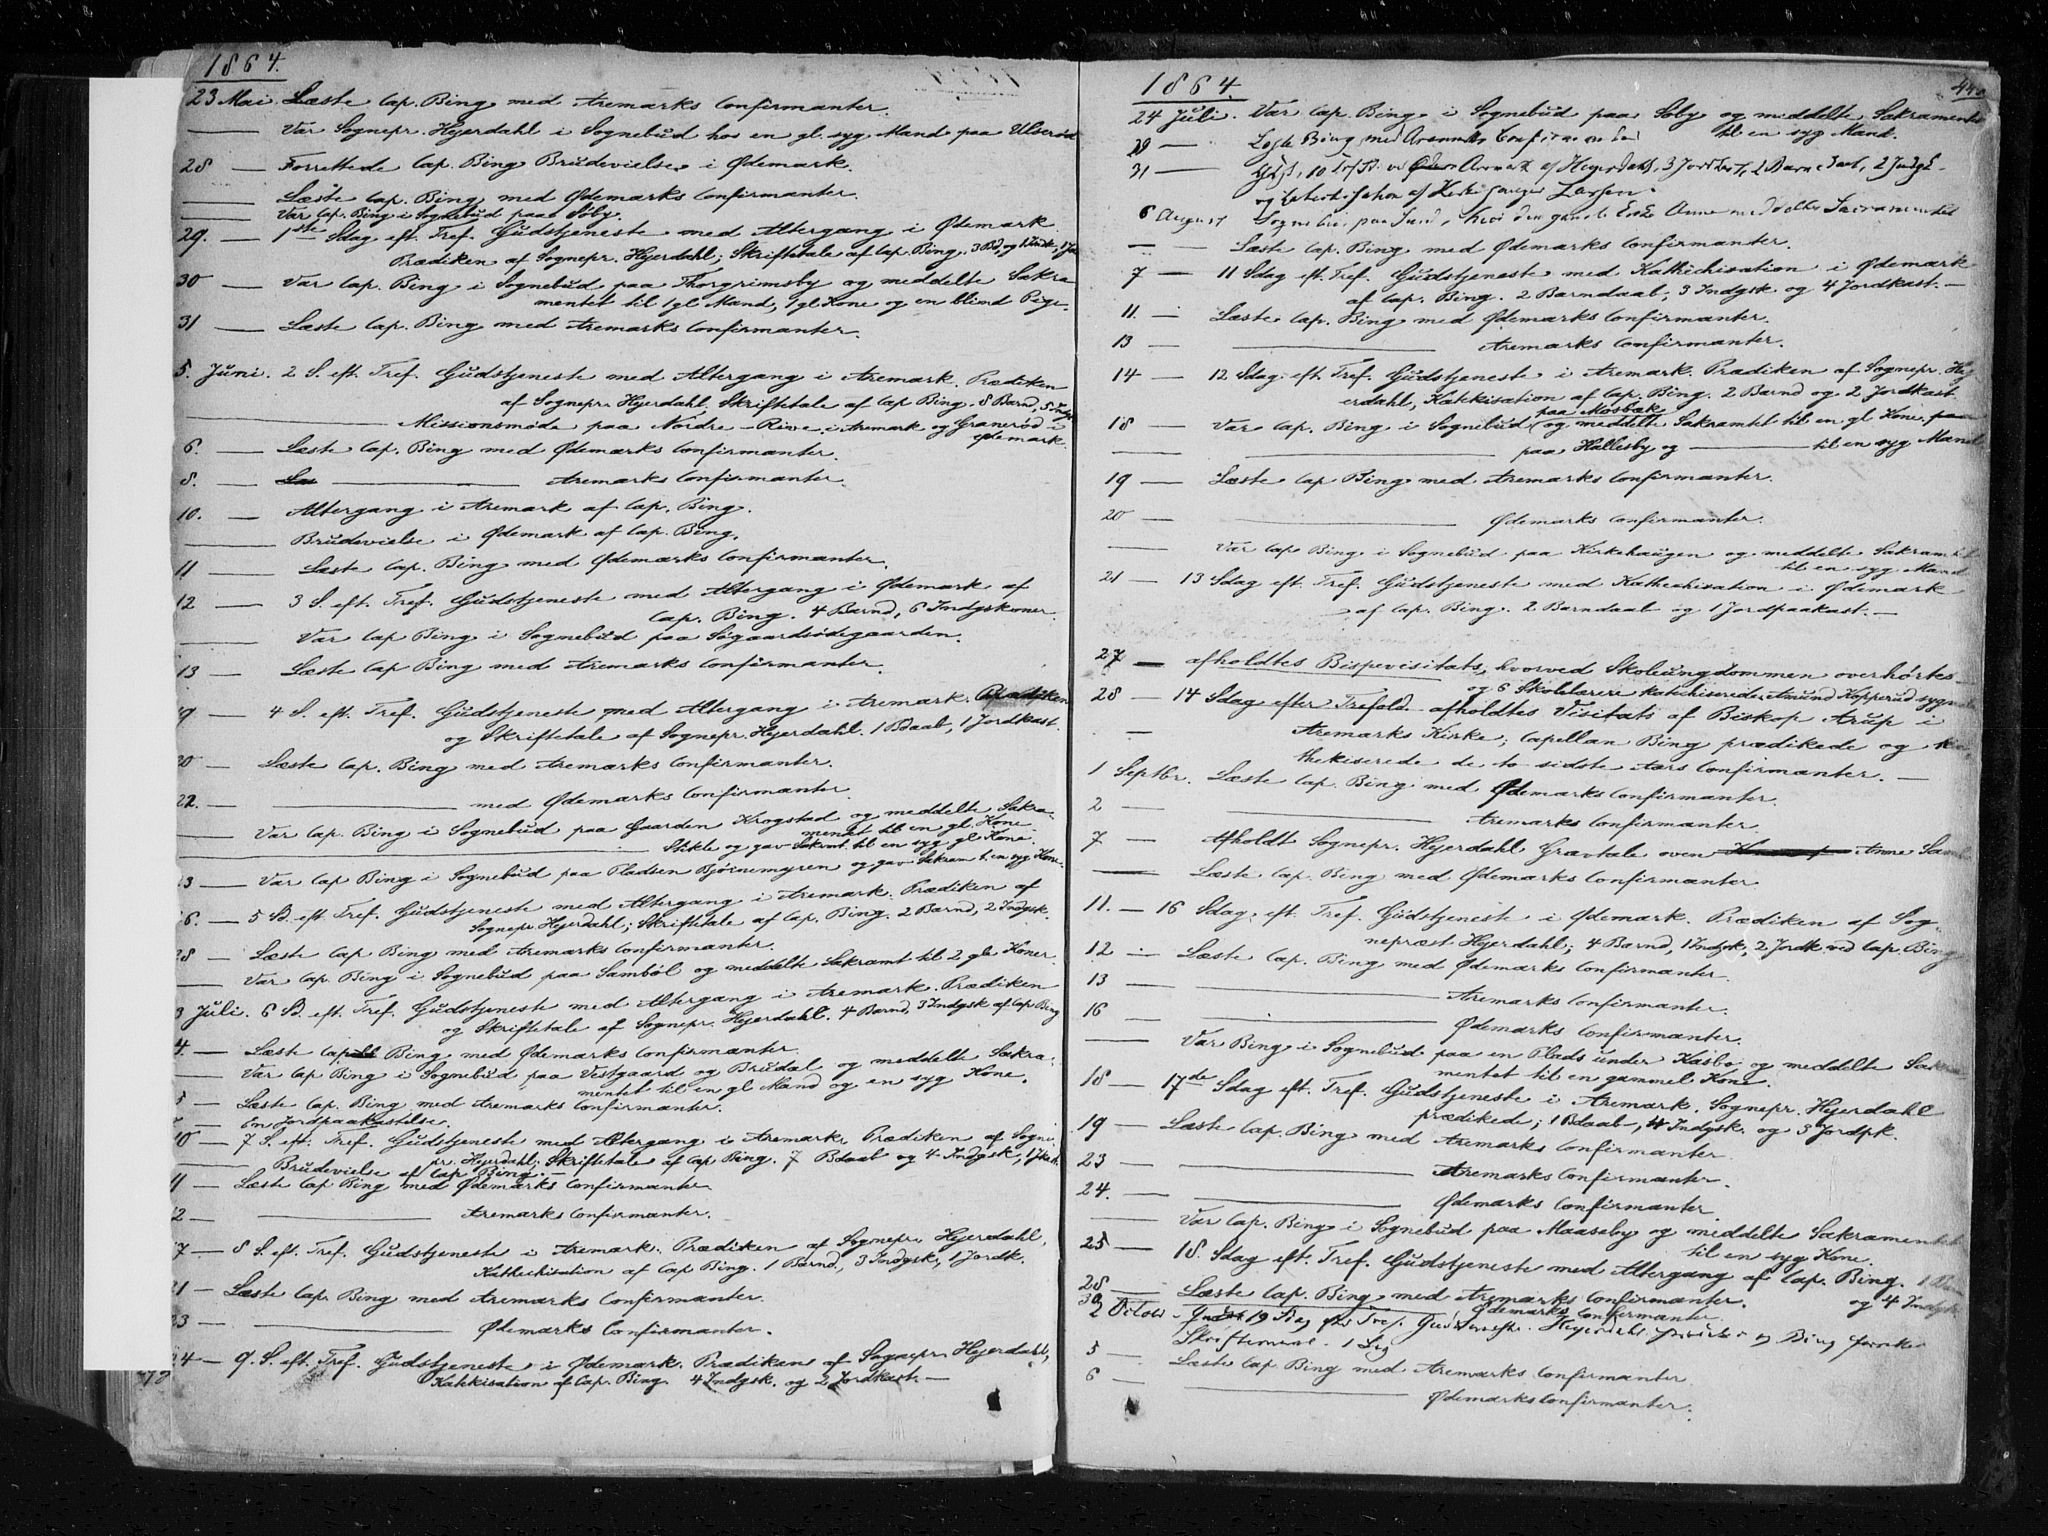 1864.
23 Mai. Læste Cap. Bing med Aremarks Confirmanter.
— Var Sognepr. Hejerdahl i Sognebud hos en gl. syg Mand paa Ulserød
28 — Forrettede Cap. Bing Brudevielse i Ødemark.
— Læste Cap. Bing med Ødemarks Confirmanter.
— Var Cap. Bing i Sognebud paa Søby.
29. — 1ste Sdag eft. Tref. Gudstjeneste med Altergang i Ødemark
Prædiken af Sognepr. Hejerdahl; Skriftetale af Cap. Bing. 3 Bd, og 1 Indk,
30 — Var Cap. Bing i Sognebud paa Thorgrimsby og meddelte Sakra
mentet til 1 gl Mand, 1 gl Kone og en blind Pige.
31 — Læste Cap. Bing med Aremarks Confirmanter.
5. Juni. 2 S. eft. Tref. Gudstjeneste med Altergang i Aremark. Prædiken
af Sognepr. Hejerdahl, Skriftetale af Cap Bing. 8 Barnd, 5 Indgk
— Missionsmøde paa Nordre-Rive i Aremark og Granerød i
Ødemark.
6. — Læste Cap. Bing med Ødemarks Confirmanter.
8. — Læs — Aremarks Confirmanter.
10. — Altergang i Aremark af Cap. Bing.
— Brudevielse i Ødemark af Cap. Bing.
11 — Læste Cap. Bing med Ødemarks Confirmanter.
12 — 3 S. eft. Tref. Gudstjeneste med Altergang i Ødemark af
Cap. Bing. 4 Barnd, 6 Indgskoner
— Var Cap Bing i Sognebud paa Søgaardsødegaarden.
13 — Læste Cap Bing med Aremarks Confirmanter.
19 — 4 S. eft. Tref. Gudstjeneste med Altergang i Aremark. Prædiken
og Skriftetale af Sognepr. Hejerdahl. 1 Bdaab, 1 Jordkast.
20 — Læste Cap. Bing med Aremarks Confirmanter.
22. — — med Ødemarks Confirmanter.
— Var Cap. Bing i Sognebud paa Gaarden Krogstad og meddelte Sakra-
mentet til en gl. Kone.
— Stikle og gav Sakrmt. til en syg gl Kone.
23 — Var Cap Bing i Sognebud paa Pladsen Bjørnemyren og gav Sakram t. en syg Kone.
26. — 5 Sd. eft. Tref. Gudstjeneste med Altergang i Aremark. Prædiken af
Sognepr Hejerdahl; Skriftetale af Cap. Bing. 2 Barnd, 2 Indgsk.
28 — Læste Cap Bing med Aremarks Confirmanter.
— Var Cap. Bing i Sognebud paa Sambøl og meddelte Sakramt til 2 gle Koner.
3 Juli. 6 Sd. eft. Tref. Gudstjeneste med Altergang i Aremark. Prædiken
og Skriftetale af Sognepr. Hejerdahl. 4 Barnd, 3 Indgsk af Cap Bing
4. — Læste Cap Bing med Ødemarks Confirmanter.
— Var Cap Bing i Sognebud paa Vestgaard og Brudal og meddelte Sakra-
mentet til en gl Mand og en syg Kone.
5 — Læste Cap. Bing med Aremarks Confirmanter.
— En Jordpaakastelse.
10 — 7 S. eft. Tref. Gudstjeneste med Altergang i Aremark. Prædiken af Sogne-
pr. Hejerdahl; Skriftetale af Cap Bing. 7 Bdaab og 4 Indgsk,
— Brudevielse af Cap Bing. —
11 — Læste Cap Bing med Ødemarks Confirmanter.
12 — — Aremarks Confirmanter.
17 — 8 S. eft. Tref. Gudstjeneste i Aremark. Prædiken af Sognepr. Hejerdahl,
Kathechisation af Cap Bing. 1 Barnd, 3 Indgsk, 1 Jordk.
21 — Læste Cap. Bing med Aremarks Confirmanter.
23 — — Ødemarks Confirmanter.
24 — 9. S. eft. Tref. Gudstjeneste i Ødemark. Prædiken af Sognepr. Hejerdahl,
Kathkisation af Cap. Bing. 4 Indgsk. og 2 Jordkast. —
1864.
440
24 Juli. Var Cap. Bing i Sognebud paa Søby og meddelte Sakramentet
til en syg Mand.
29 — Læste Bing med Aremarks Confirmanter
31 — Gdst, 10 Aremark af Hejerdahl, 3 Jordkast, 2 Barnedaab, 2 Indgk
og Katechisation af Larsen.
6 August Anne meddelte Sacramentet
— — Læste Cap. Bing med Ødemarks Confirmanter.
7 — 11 Sdag eft. Tref. Gudstjeneste med Kathechisation i Ødemark
af Cap. Bing. 2 Barndaab, 3 Indgsk og 4 Jordkast. —
11. — Læste Cap. Bing med Ødemarks Confirmanter.
13 — — Aremarks Confirmanter.
14 — 12 Sdag eft. Tref. Gudstjeneste i Aremark. Prædiken af Sognepr. Hej
erdahl, Kathkisation af Cap. Bing. 2 Barnd og 2 Jordkast
paa Mosbæk
18 — Var Cap. Bing i Sognebud og meddelte Sakramtet til en gl Kone, paa
— — paa Hallesby og — til en syg Mand
19 — Læste Cap Bing med Aremarks Confirmanter.
20 — — Ødemarks Confirmanter.
— Var Cap Bing i Sognebud paa Kirkehaugen og meddelte Sakramtet
til en syg Mand
21 — 13 Sdag eft. Tref. Gudstjeneste med Kathechisation i Ødemark
af Cap. Bing. 2 Barndaab og 1 Jordpaakast. —
27 — afholdtes Bispevisitats, hvorved Skoleungdommen overhørtes
og 6 Skolelærere katchiserede Amund Kopperud syg
28 — 14 Sdag efter Trefold. afholdtes Visitats af Biskop Arup i
— Aremarks Kirke; Capellan Bing prædikede og ka
thekiserede de to sidste Aars Confirmanter. —
1 Septbr. Læste Cap. Bing med Ødemarks Confirmanter.
2 — — Aremarks Confirmanter.
7 — Afholdt Sognepr. Hejerdahl Gravtale over Anne
— Læste Cap. Bing med Ødemarks Confirmanter
11. — 16 Sdag eft. Tref. Gudstjeneste i Ødemark. Prædiken af Sog-
nepræst Hejerdahl; 4 Barnd, 1 Indgk, 2 Jordk. ved Cap. Bing
12 — Læste Cap. Bing med Ødemarks Confirmanter.
13 — — Aremarks Confirmanter.
16 — — Ødemarks Confirmanter.
— Var Bing i Sognebud paa en Plads under Kasbo og meddelte Sakra-
mentet til en gammel Kone.
18 — 17de Sdag eft. Tref. Gudstjeneste i Aremark. Sognepr. Hejerdahl
prædikede; 1 Bdaab, 4 Indgsk. og 3 Jordpk.
19 — Læste Cap. Bing med Aremarks Confirmanter.
23 — — Aremarks Confirmanter.
24. — — Ødemarks Confirmanter
— Var Cap. Bing i Sognebud paa Maaseby og meddelte Sakramentet
til en syg Kone.
25 — 18. Sdag eft. Tref. Gudstjeneste med Altergang af Cap. Bing.
og 4 Indgsk
28 — Læste Cap. Bing med Aremarks Confirmanter.
30 — Ødemarks Confirmanter
2 Octob. 19 Sdag eft Tref. Gudstjeneste. Hejerdahl prædiker og Bing
Skriftemaal.
5 — Læste Cap. Bing med Aremarks Confirmanter.
6 — — Ødemarks Confirmanter.